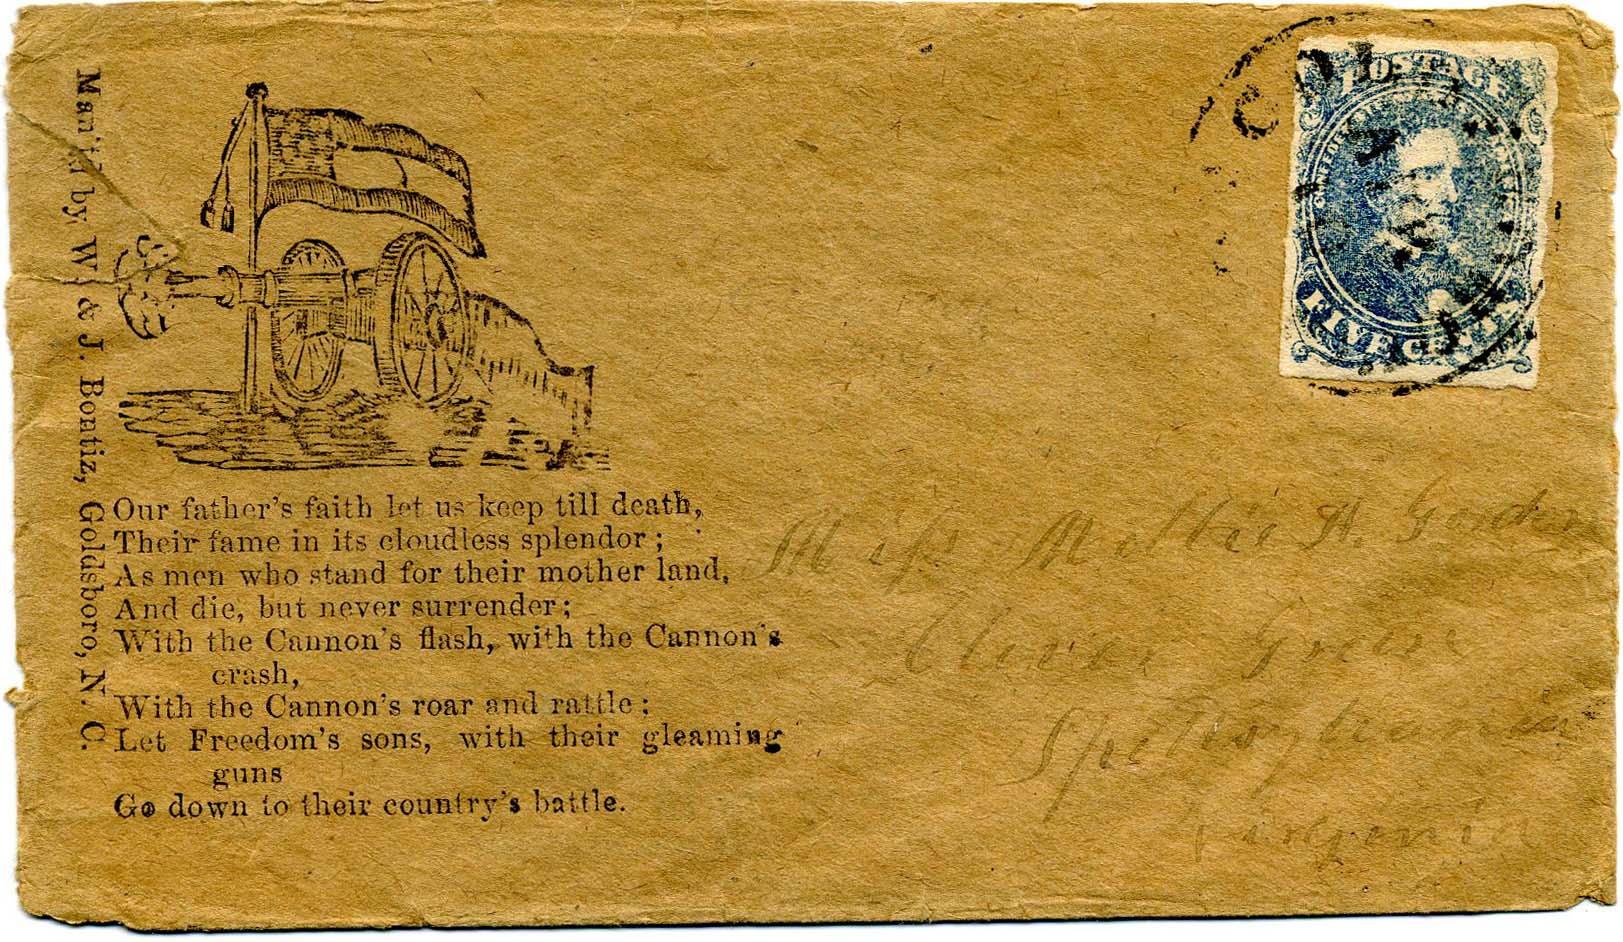 Manf'd by W. & J. Bontiz, Goldsboro, N. C.
Our father's faith let us keep till death,
Their fame in its cloudless splendor;
As men who stand for their mother land,
And die, but never surrender;
With the Cannon's flash, with the Cannon's
crash,
With the Cannon's roar and rattle;
Let Freedom's sons, with their gleaming
guns
Go down to their country's battle.
POSTAGE
FIVE CENTS
Miss Mollie H.
Green
Spottsylvania
Virginia